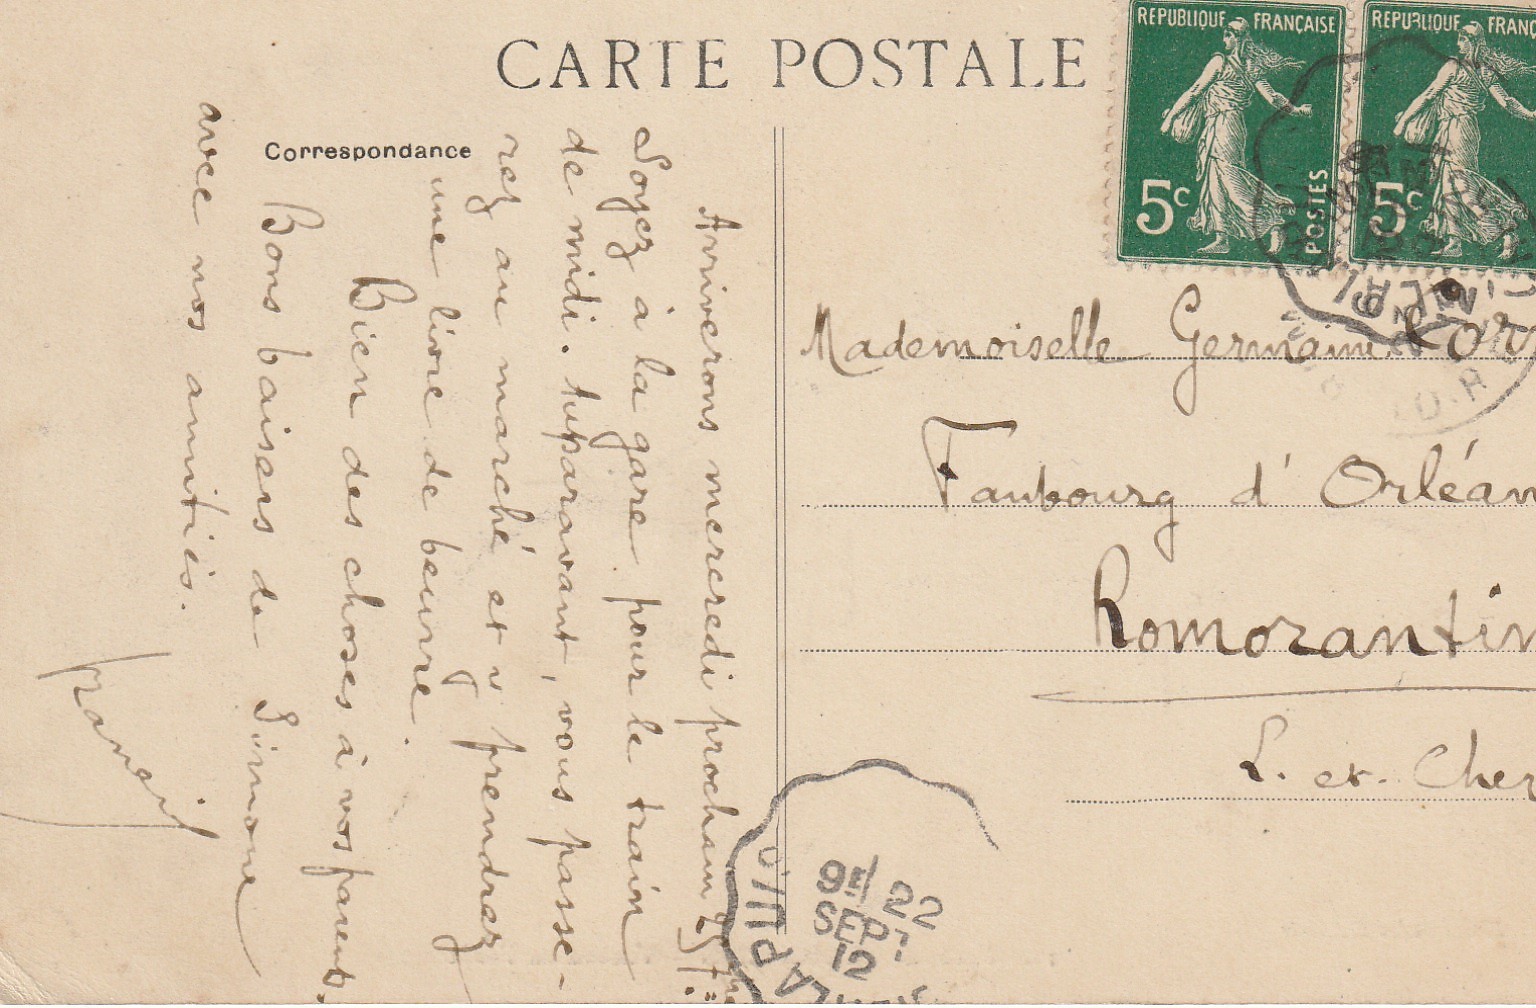 CARTE POSTALE
Correspondance
REPUBLIQUE FRANÇAISE
5c
POSTES
REPUBLIQUE FRANÇ
5c
Arriverons mercredi prochain 25 7bre
Soyez à la gare pour le train
de midi. Auparavant, vous passe-
rez au marché et y prendrez
une livre de beurre.
Bien des choses à vos parents.
Bons baisers de Simone
avec nos amitiés.
Mademoiselle Germaine
Faubourg d'Orléan
Romorantin
L. et Cher
9E/22
SEPT
12